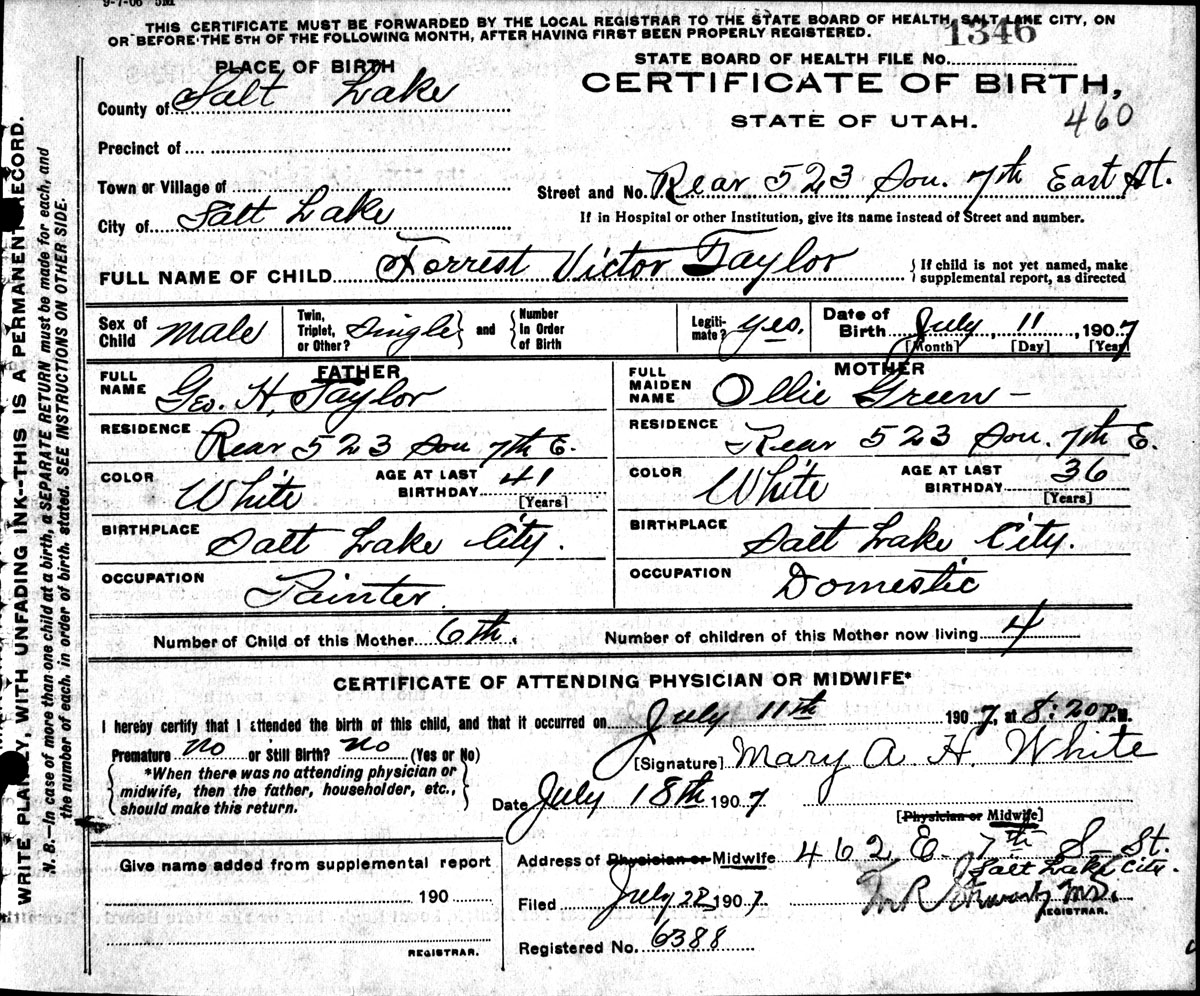 9-7-06 5M
THIS CERTIFICATE MUST BE FORWARDED BY THE LOCAL REGISTRAR TO THE STATE BOARD OF HEALTH, SALT LAKE CITY, ON
OR BEFORE THE 5TH OF THE FOLLOWING MONTH, AFTER HAVING FIRST BEEN PROPERLY REGISTERED.
1346
PLACE OF BIRTH
STATE BOARD OF HEALTH FILE No.
CERTIFICATE OF BIRTH,
STATE OF UTAH.
460
County of Salt Lake
Precinct of
Town or Village of
City of Salt Lake
Street and No. Rear 523 Sou. 7th East St.
If in Hospital or other Institution, give its name instead of Street and number.
FULL NAME OF CHILD Forrest Victor Taylor
{If child is not yet named, make
supplemental report, as directed
Sex of Child Male
Twin, Triplet, or Other? Single } and { Number In Order of Birth
Legiti-mate? yes.
Date of Birth July 11, 1907
[Month] [Day] [Year]
FATHER
FULL NAME Geo. H. Taylor
RESIDENCE Rear 523 Sou 7th E.
COLOR White AGE AT LAST BIRTHDAY 41 [Years]
BIRTHPLACE Salt Lake City.
OCCUPATION Painter.
MOTHER
FULL MAIDEN NAME Ollie Green -
RESIDENCE Rear 523 Sou. 7th E.
COLOR White AGE AT LAST BIRTHDAY 36 [Years]
BIRTHPLACE Salt Lake City.
OCCUPATION Domestic
Number of Child of this Mother 6th. Number of children of this Mother now living 4
CERTIFICATE OF ATTENDING PHYSICIAN OR MIDWIFE*
I hereby certify that I attended the birth of this child, and that it occurred on July 11th 1907, at 8:20 P.M.
Premature no or Still Birth? no (Yes or No)
{*When there was no attending physician or
midwife, then the father, householder, etc.,
should make this return.}
[Signature] Mary A H. White
Date July 18th 1907
[Physician or Midwife]
Address of Physician or Midwife 462 E. 7th S- St.
Salt Lake City.
Give name added from supplemental report
190
REGISTRAR.
Filed July 22, 1907. M.D.
REGISTRAR.
Registered No. 6388
WRITE PLAINLY, WITH UNFADING INK--THIS IS A PERMANENT RECORD.
N. B.—In case of more than one child at a birth, a SEPARATE RETURN must be made for each, and
the number of each, in order of birth, stated. SEE INSTRUCTIONS ON OTHER SIDE.